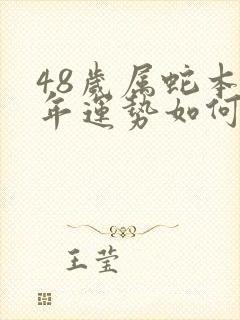 48歲属蛇本
年運勢如何
王莹